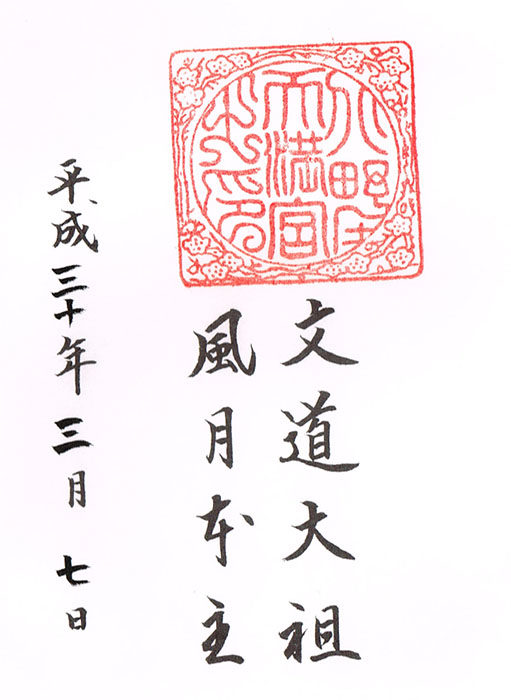 天満宮
文道大祖
風月本主
平成三十年三月七日